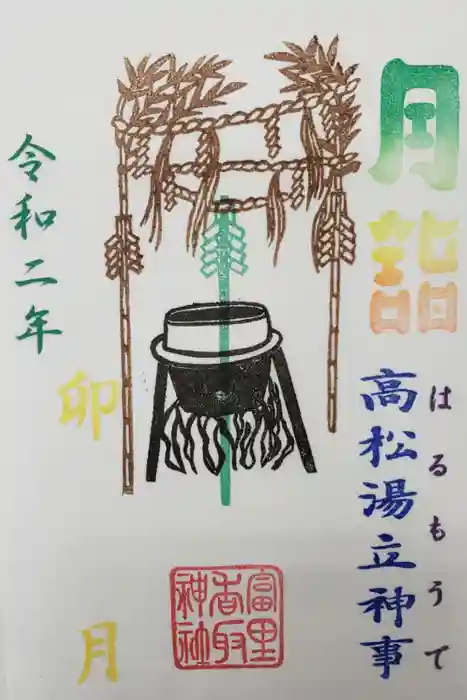 月詣
はるもうて
高松湯立神事
令和二年
卯月
富里
香取
神社